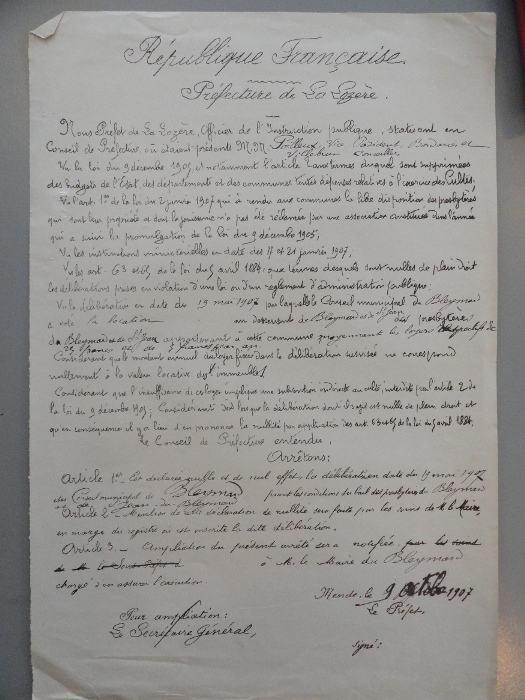 République Française
Préfecture de La Lozère.
Nous Préfet de La Lozère, Officier de l'Instruction publique, statuant en
Conseil de Préfecture où étaient présents M.M. Vice Président,
Conseillers
Vu la loi du 9 décembre 1905, et notamment l'article 2 aux termes duquel sont supprimées
des budgets de l'Etat, des départements et des communes toutes dépenses relatives à l'exercice des Cultes;
Vu l'art. 1er de la loi du 2 janvier 1907 qui a rendu aux communes la libre disposition des presbytères
qui sont leur propriété et dont la jouissance n'a pas été réclamée par une association constituée dans l'année
qui a suivi la promulgation de la loi du 9 décembre 1905;
Vu les instructions ministérielles en date des 17 et 21 janvier 1907;
Vu les art. 63 et 65 de la loi du 5 avril 1884: aux termes desquels sont nulles de plein droit
les délibérations prises en violation d'une loi ou d'un règlement d'administration publique;
Vu la délibération en date du 19 mai 1907 par laquelle le Conseil municipal de Bleymard
a voté la location aux desservants de Bleymard et de St Jean des presbytères
du Bleymard et de St Jean appartenant à cette commune moyennant les loyers respectifs de
25 francs et de
Considérant que le montant annuel du loyer fixé dans la délibération susvisée ne correspond
nullement à la valeur locative des immeubles;
Considérant que l'insuffisance de ce loyer implique une subvention indirecte au culte, interdite par l'article 2 de
la loi du 9 décembre 1905; Considérant dès lors que la délibération dont il s'agit est nulle de plein droit et
qu'en conséquence il y a lieu d'en prononcer la nullité par application des art. 63 et 65 de la loi du 5 avril 1884.
Le Conseil de Préfecture entendu,
Arrêtons:
Article 1er Est déclarée nulle et de nul effet, la délibération en date du 19 mai 1907
du Conseil municipal de Bleymard fixant les conditions du bail des presbytères du Bleymard
et de St Jean du Bleymard
Article 2. Mention de la déclaration de nullité sera faite par les soins de M. le Maire,
en marge du registre où est inscrite la dite délibération.
Article 3. - Ampliation du présent arrêté sera notifiée, par les soins
de M. le Sous Préfet à M. le Maire du Bleymard
chargé d'en assurer l'exécution.
Mende, le 9 octobre 1907
Le Préfet,
Pour ampliation:
Le Secrétaire Général,
Signé: